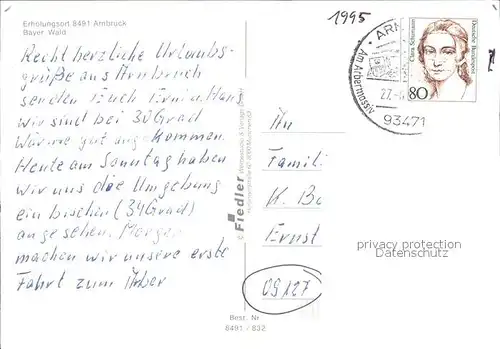 Erholungsort 8491 Arnbruck
Bayer Wald
Recht herzliche Urlaubs-
grüße aus Arnbruck
senden Euch Erni u. Hans
wir sind bei 30 Grad
Wärme gut angekommen.
Heute am Sonntag haben
wir uns die Umgebung
ein bischen (34 Grad)
angesehen. Morgen
machen wir unsere erste
Fahrt zum Arber
Fiedler
Best. Nr
8491 / 832
1995
ARN
Am Arber
27.
93471
Clara Schumann
Deutsche Bundespost
80
An
Famili
K. Bo
Ernst
09127
privacy protection
Datenschutz